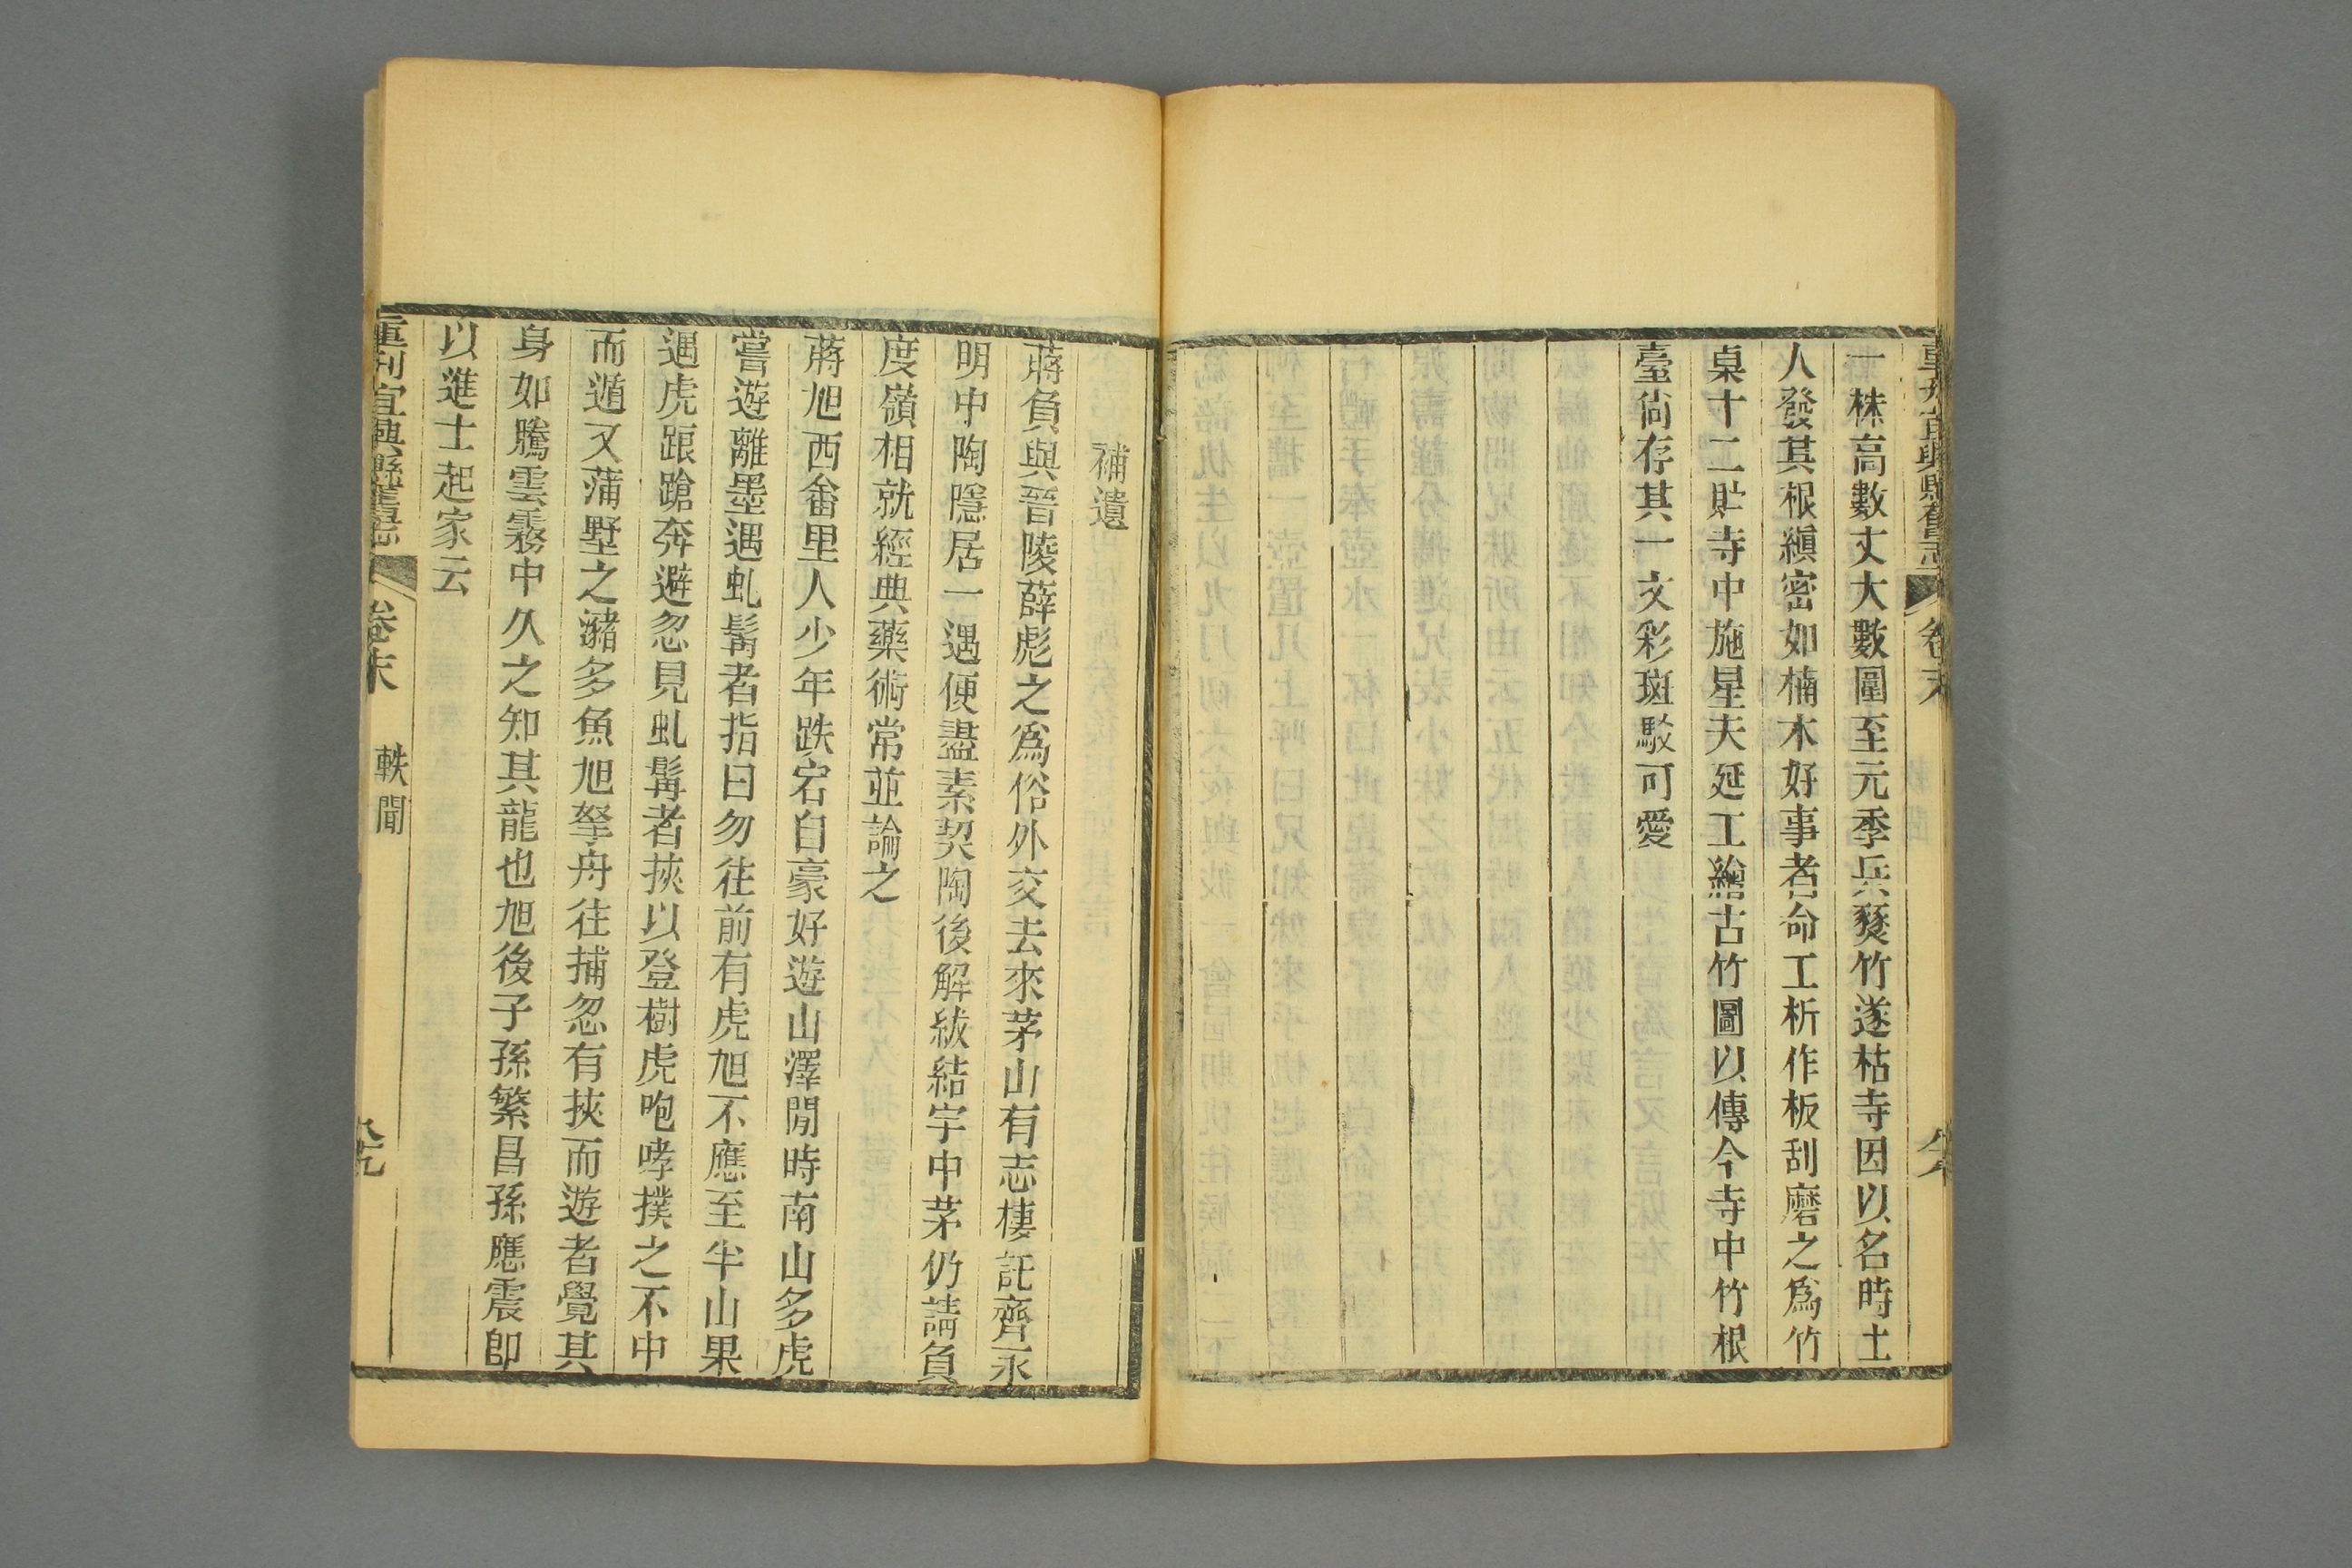 一株高數丈大數圍至元季兵燹竹遂枯寺因以名時土
人發其根縝密如楠木好事者命工析作板刮磨之為竹
桌十二貯寺中施星夫延工繪古竹圖以傳今寺中竹根
臺尙存其一文彩斑駁可愛
補遺
蔣負與晉陵薛彪之為俗外交去來茅山有志棲託齊永
明中陶隱居一遇便盡素契陶後解紱結宇中茅仍請負
度嶺相就經典藥術常並論之
蔣旭西畬里人少年跌宕自豪好遊山澤閒時南山多虎
嘗遊離墨遇虬髯者指曰勿往前有虎旭不應至半山果
遇虎踉蹌奔避忽見虬髯者挾以登樹虎咆哮撲之不中
而遁又蒲墅之瀦多魚旭拏舟往捕忽有挾而遊者覺其
身如騰雲霧中久之知其龍也旭後子孫繁昌孫應震卽
以進士起家云
重刊宜興縣舊志
卷末
軼聞